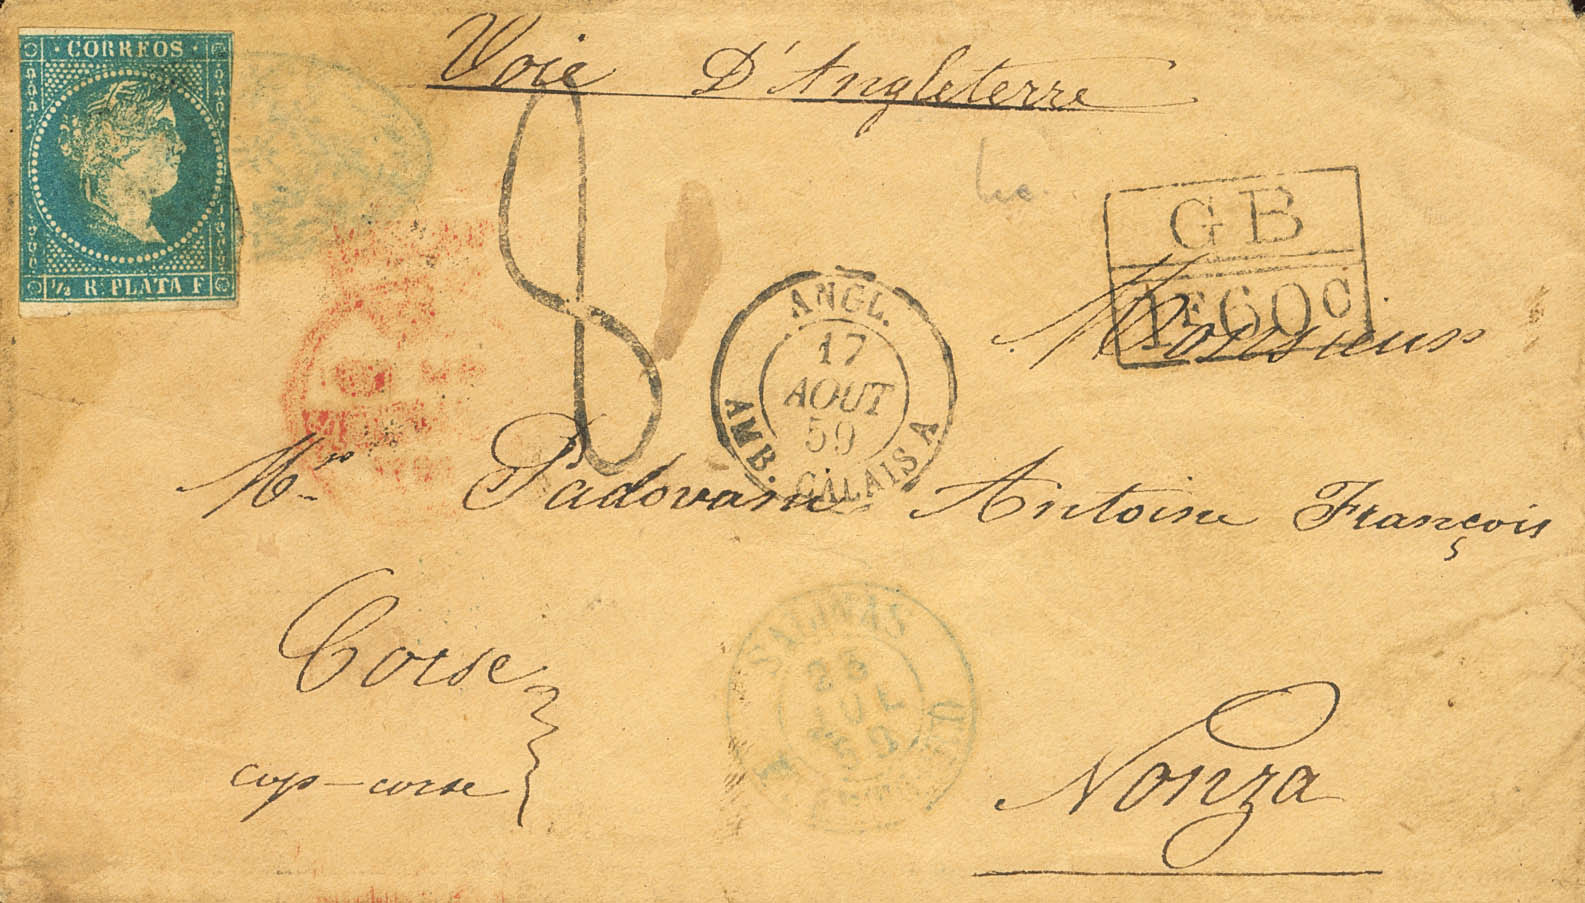 · CORREOS ·
1/2 R. PLATA F
Voie D'Angleterre
8
GB
1F60c
ANGL.
17
AOUT
59
AMB. CALAIS A
Monsieur
Mr Padovani Antoine François
Corse
cap-corse
JUL
Nonza